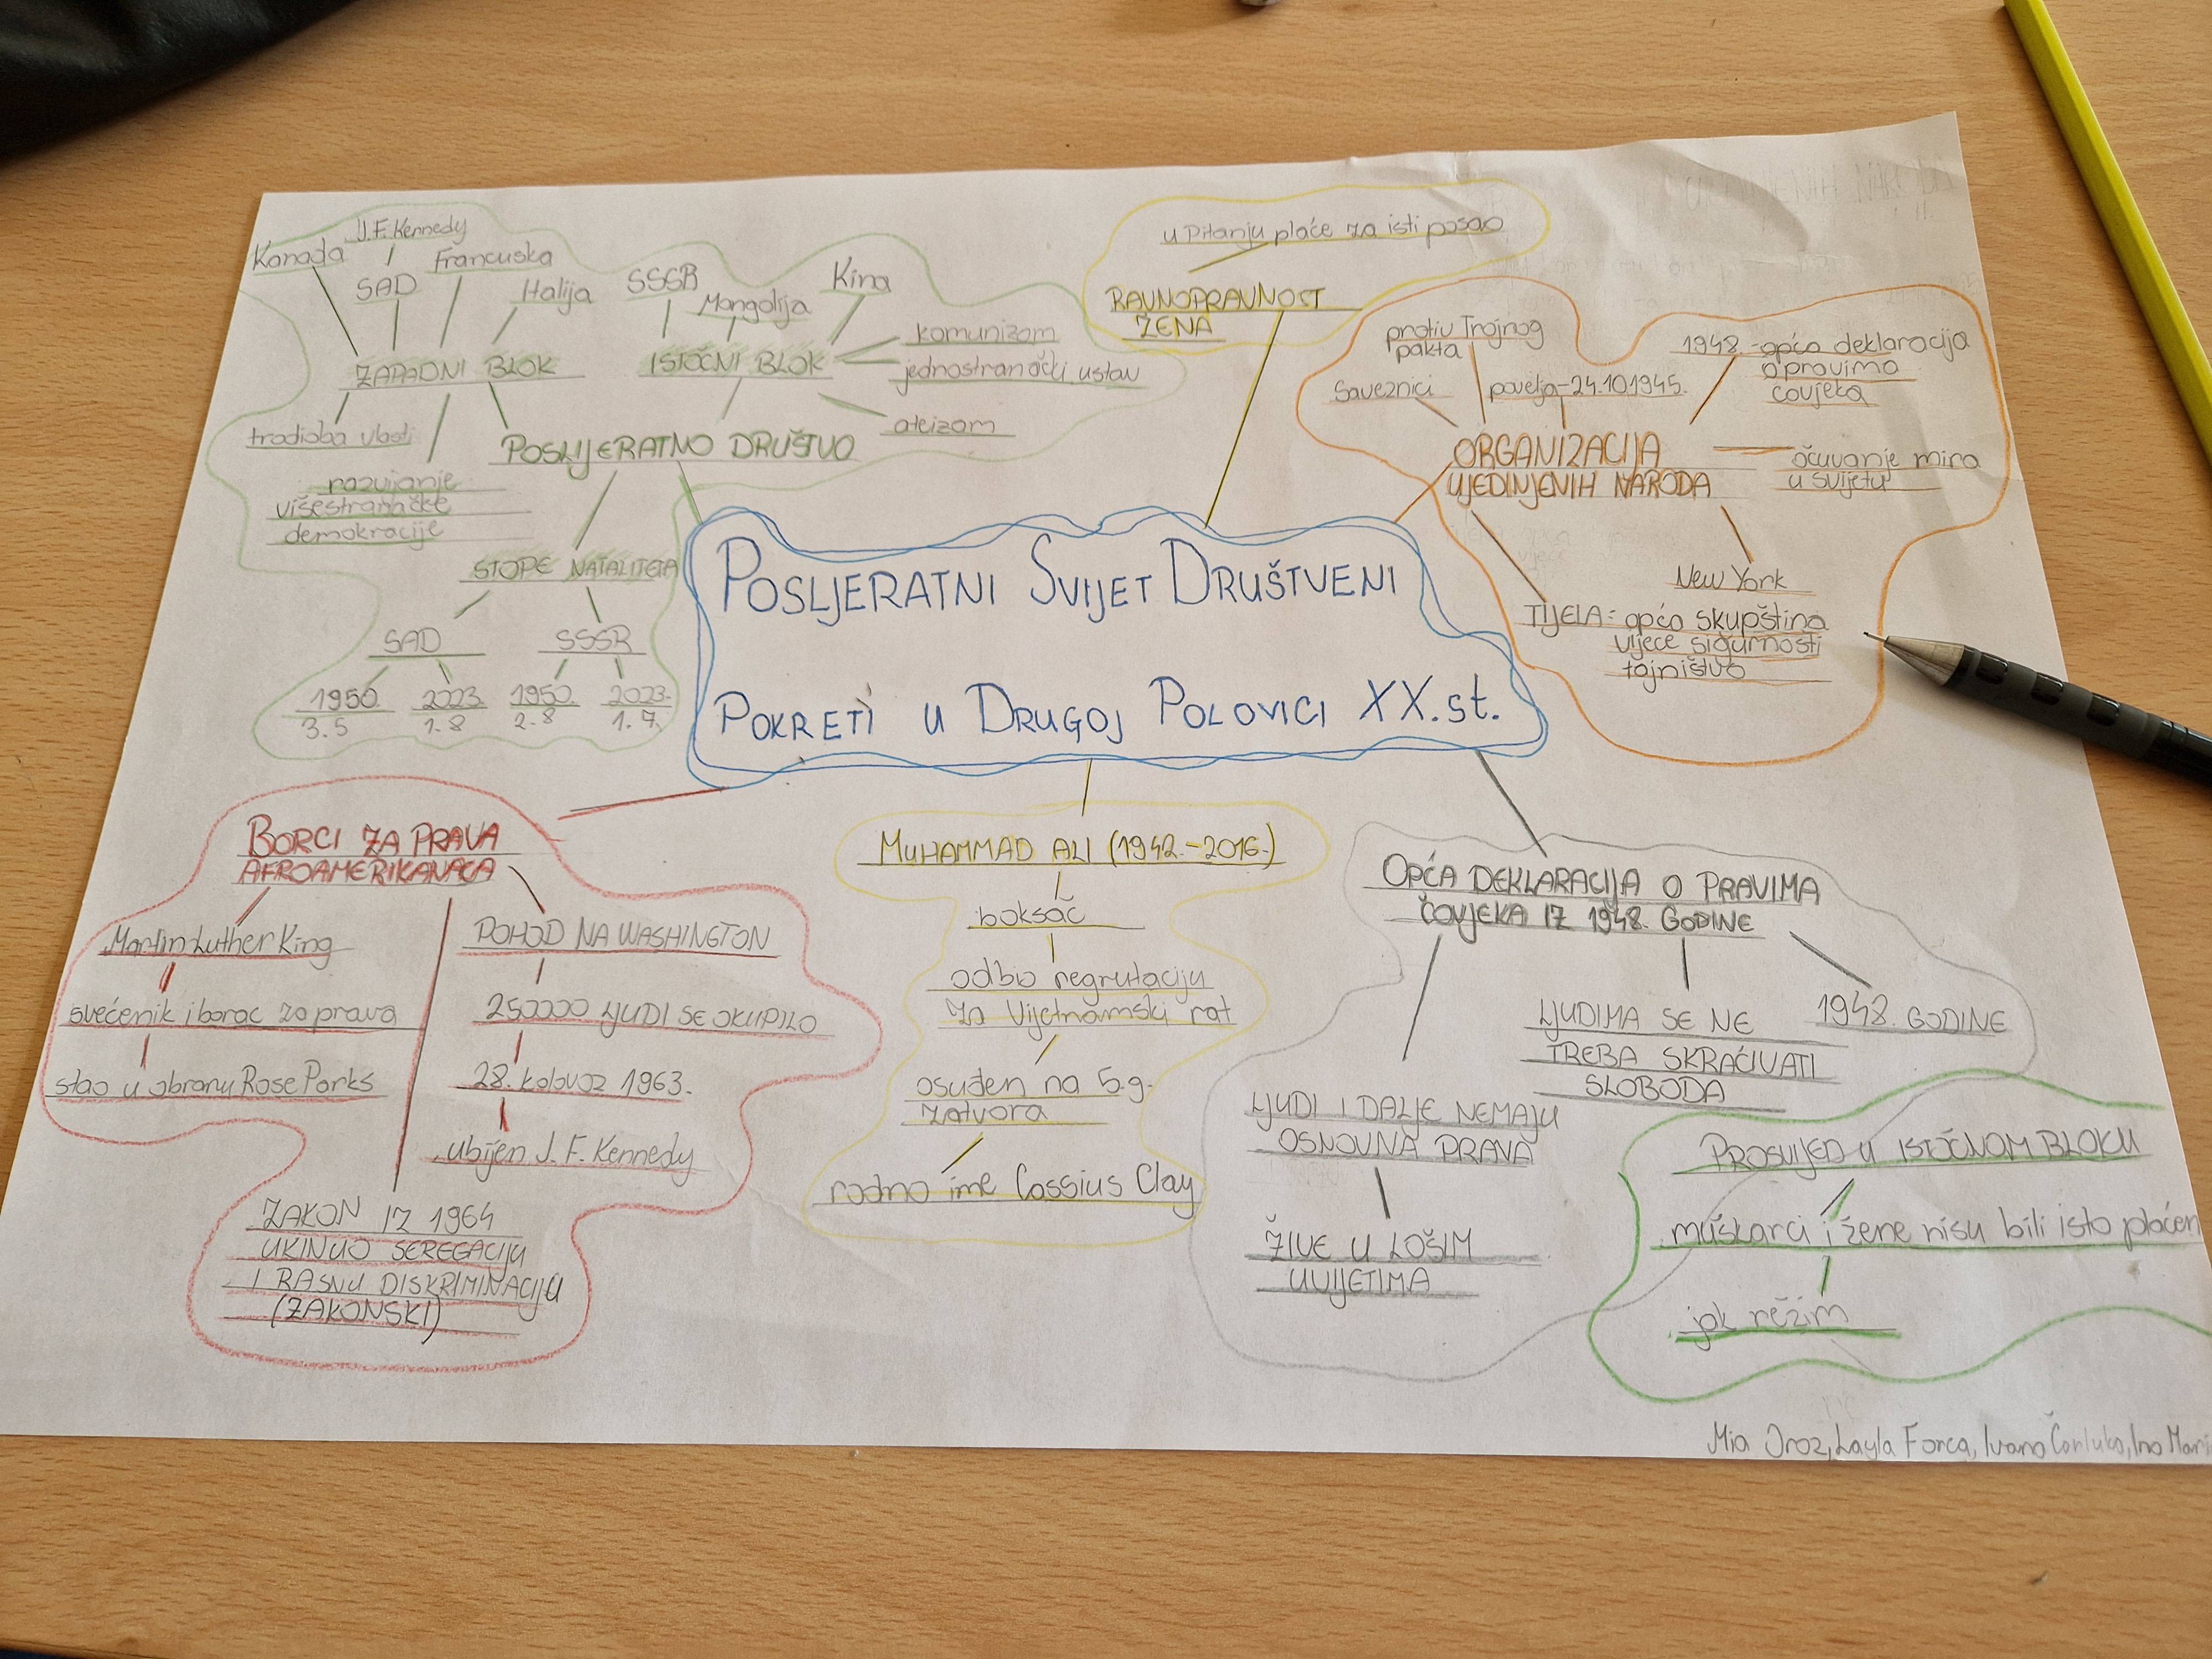 J.F. Kennedy
Kanada
SAD
Francuska
Italija
ZAPADNI BLOK
trodioba vlasti
razvijanje
višestranačke
demokracije
SSSR
Mongolija
Kina
ISTOČNI BLOK
komunizam
jednostranački ustav
ateizam
POSLIJERATNO DRUŠTVO
STOPE NATALITETA
SAD
SSSR
1950. 2023. 1950. 2023.
3.5 1.8 2.8 1.7.
u pitanju plaće za isti posao
RAVNOPRAVNOST
ŽENA
protiv Trojnog
pakta
Saveznici
povelja-24.10.1945.
1948.-opća deklaracija
o pravima
čovjeka
ORGANIZACIJA
UJEDINJENIH NARODA
očuvanje mira
u svijetu
New York
TIJELA: opća skupština
vijeće sigurnosti
tajništvo
POSLJERATNI SVIJET DRUŠTVENI
POKRETI U DRUGOJ POLOVICI XX.st.
BORCI ZA PRAVA
AFROAMERIKANACA
Martin Luther King
svećenik i borac za prava
stao u obranu Rose Parks
POHOD NA WASHINGTON
250000 LJUDI SE OKUPILO
28. kolovoz 1963.
ubijen J. F. Kennedy
ZAKON IZ 1964
UKINUO SEREGACIJU
I RASNU DISKRIMINACIJU
(ZAKONSKI)
MUHAMMAD ALI (1942.-2016.)
boksač
odbio regrutaciju
za Vijetnamski rat
osuđen na 5.g.
zatvora
rodno ime Cassius Clay
OPĆA DEKLARACIJA O PRAVIMA
ČOVJEKA IZ 1948. GODINE
LJUDI I DALJE NEMAJU
OSNOVNA PRAVA
ŽIVE U LOŠIM
UVIJETIMA
LJUDIMA SE NE
TREBA SKRAĆIVATI
SLOBODA
1948. GODINE
PROSVIJED U ISTOČNOM BLOKU
muškarci i žene nisu bili isto plaćen
jak režim
Mia Layla Ivano